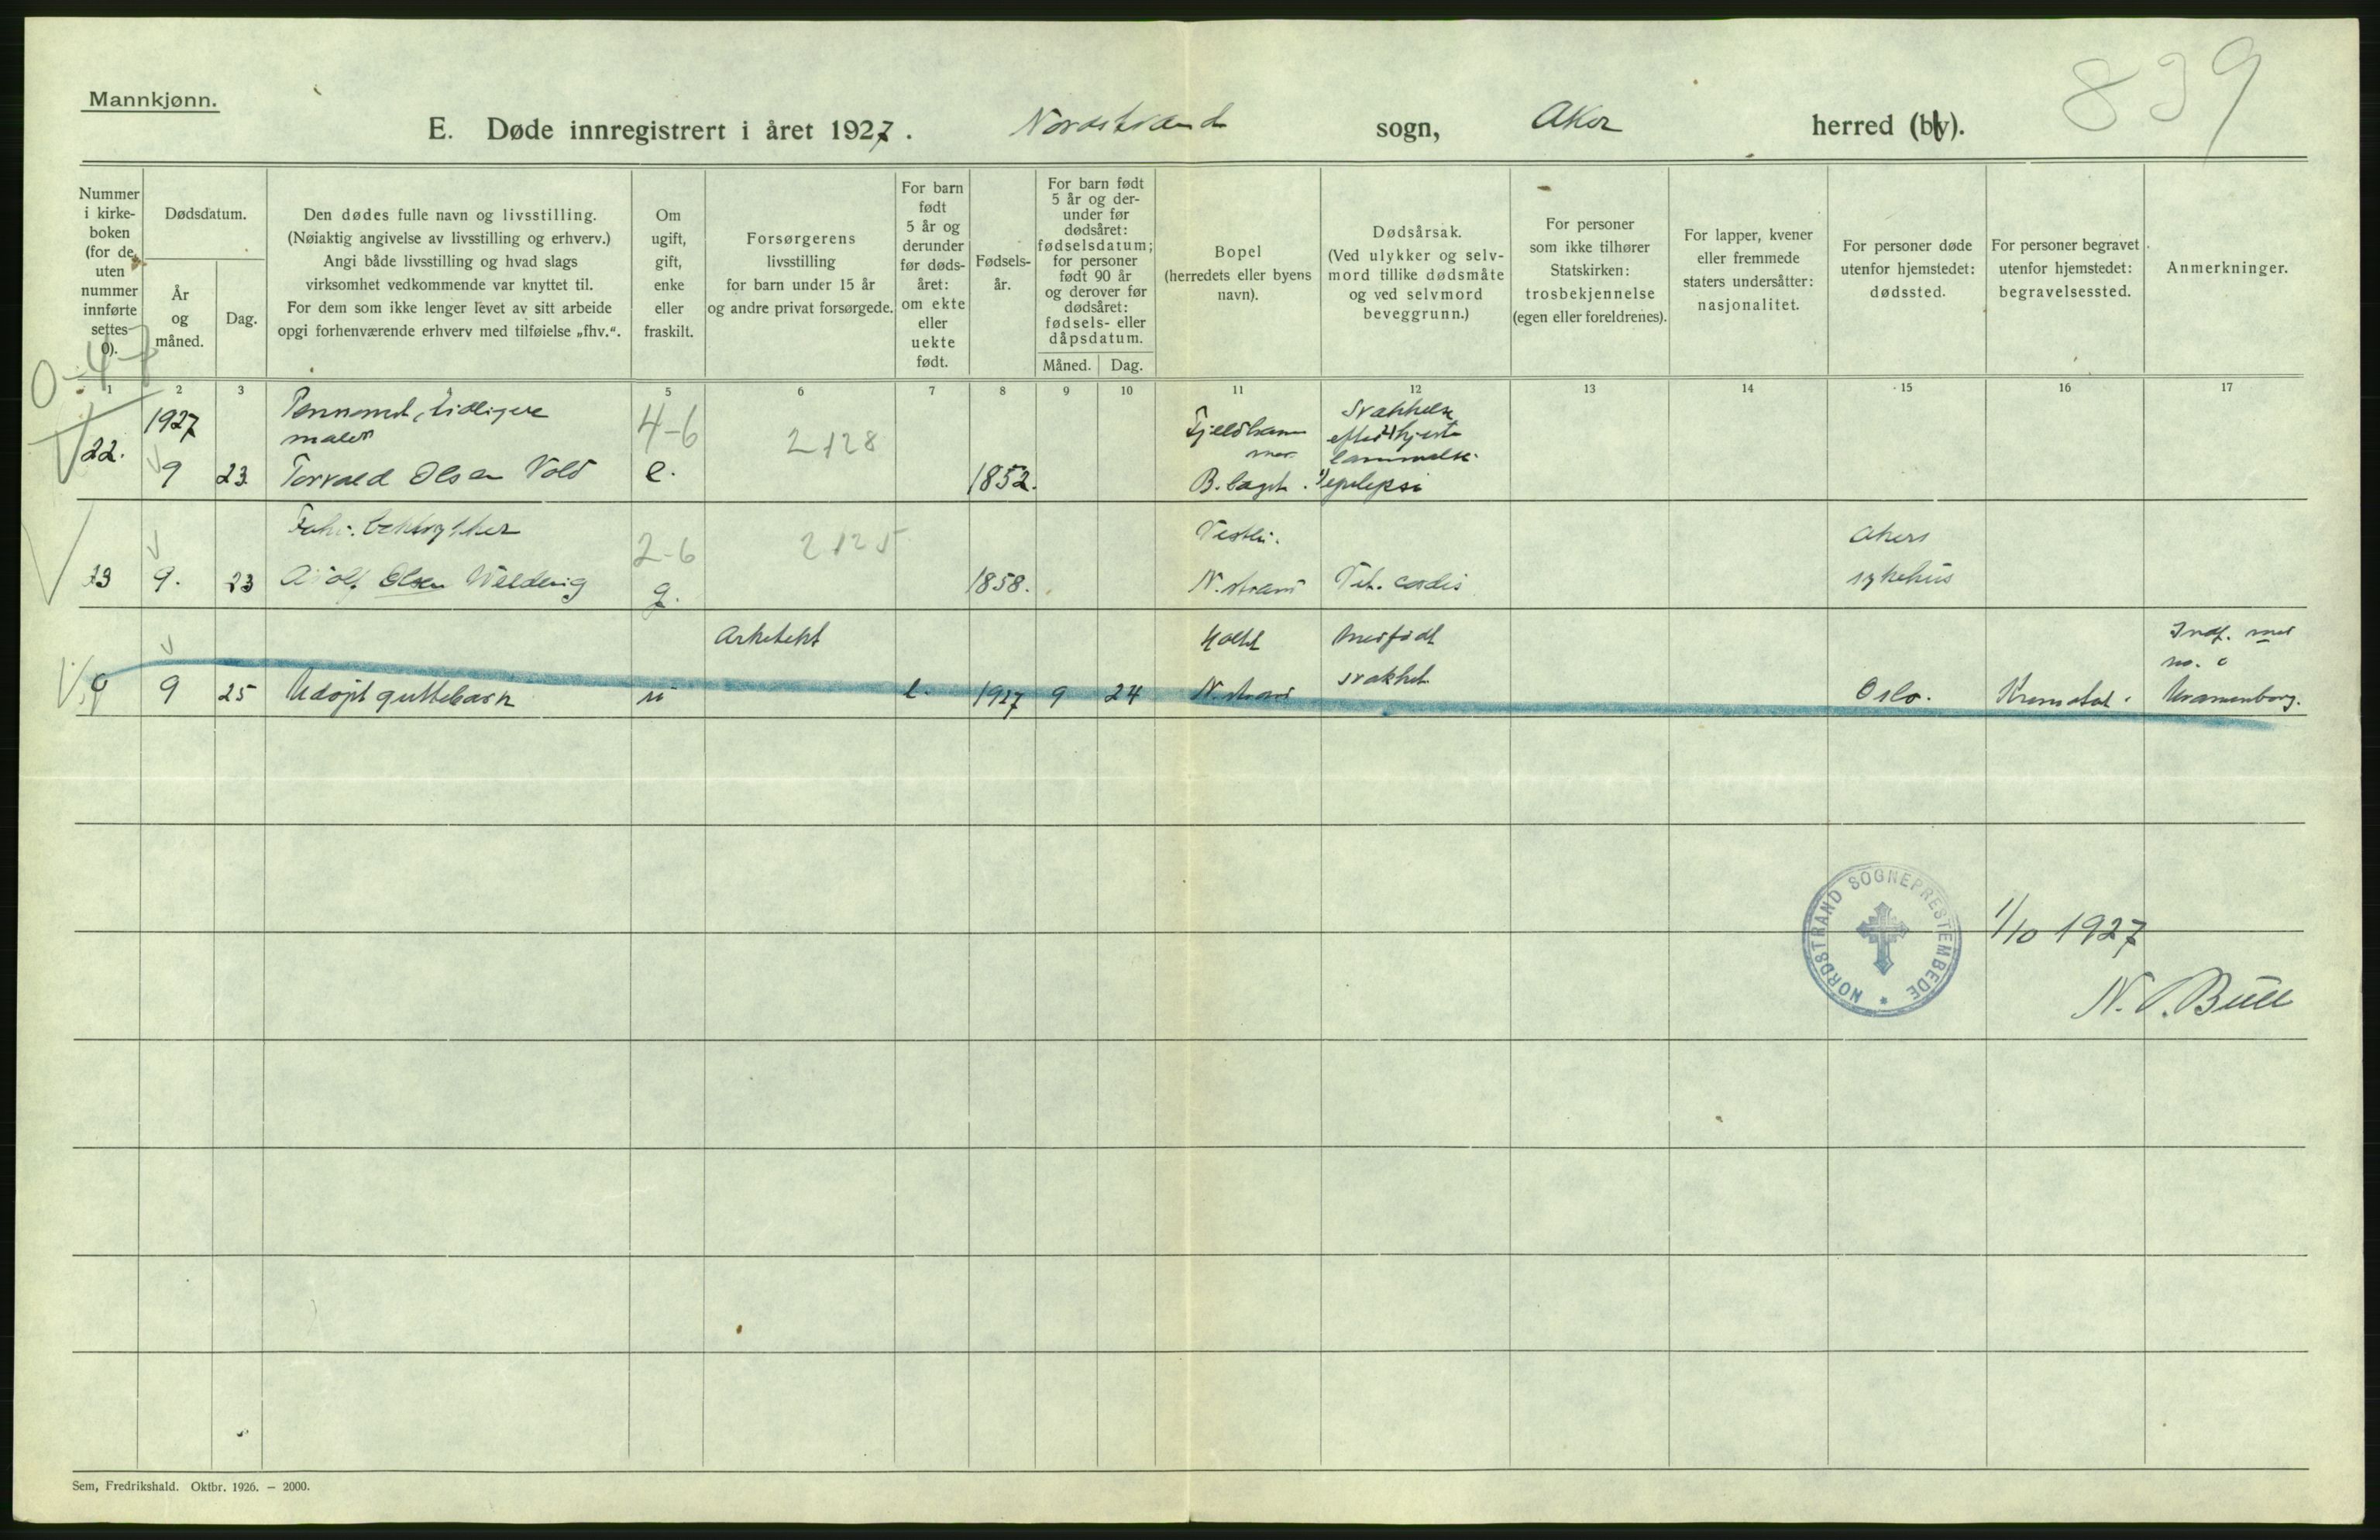 839
Mannkjønn.
E. Døde innregistrert i året 1927. Nordstrand sogn, Aker herred (by).
Nummer
i kirke-
boken
(for de
uten
nummer
innførte
settes
0).
Dødsdatum.
År
og
måned.
Dag.
Den dødes fulle navn og livsstilling.
(Nøiaktig angivelse av livsstilling og erhverv.)
Angi både livsstilling og hvad slags
virksomhet vedkommende var knyttet til.
For dem som ikke lenger levet av sitt arbeide
opgi forhenværende erhverv med tilføielse „fhv.“.
Om
ugift,
gift,
enke
eller
fraskilt.
Forsørgerens
livsstilling
for barn under 15 år
og andre privat forsørgede.
For barn
født
5 år og
derunder
før døds-
året:
om ekte
eller
uekte
født.
Fødsels-
år.
For barn født
5 år og der-
under før
dødsåret:
fødselsdatum;
for personer
født 90 år
og derover før
dødsåret:
fødsels- eller
dåpsdatum.
Måned. Dag.
Bopel
(herredets eller byens
navn).
Dødsårsak.
(Ved ulykker og selv-
mord tillike dødsmåte
og ved selvmord
beveggrunn.)
For personer
som ikke tilhører
Statskirken:
trosbekjennelse
(egen eller foreldrenes).
For lapper, kvener
eller fremmede
staters undersåtter:
nasjonalitet.
For personer døde
utenfor hjemstedet:
dødssted.
For personer begravet
utenfor hjemstedet:
begravelsessted.
Anmerkninger.
0-4-7
1 2 3 4 5 6 7 8 9 10 11 12 13 14 15 16 17
1927 tidligere 4-6 2128 Svakkelse
maler efter hjerte
22. 9 23. Torvald Olsen Vold e. 1852. B.laget. epilepsi
2-6 2125 Vestli. Akers
23 9. 23 Adolf Olsen Weldevig g. 1858. N.strand Vit. cordis sykehus
Arkitekt Holtet Medfødt Indf. med
svakhet no. 0
0 9 25 Udøpt guttebarn u e. 1927 9 24 N.strand Oslo. Kremator. Uranienborg.
NORDSTRAND SOGNEPRESTEMBEDE
1/10 1927
N. Bull
Sem, Fredrikshald. Oktbr. 1926. – 2000.